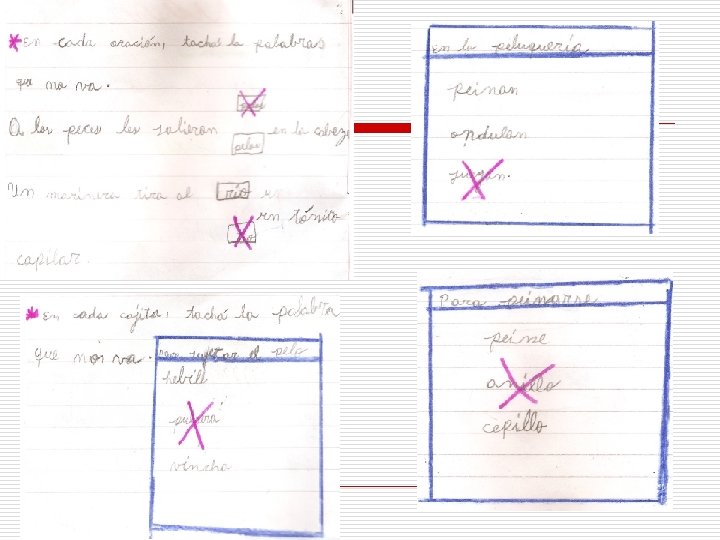 *En cada oración, tachá la palabras
que no va.
A los peces les salieron
pelos
en la cabeza
Un marinero tira al
río
un tónico
capilar.
*En cada cajita, tachá la palabra
que no va.
Para sujetar el pelo
hebill
vincha
En la peluquería
peinan
ondulan
juegan.
Para peinarse
peine
anillo
cepillo